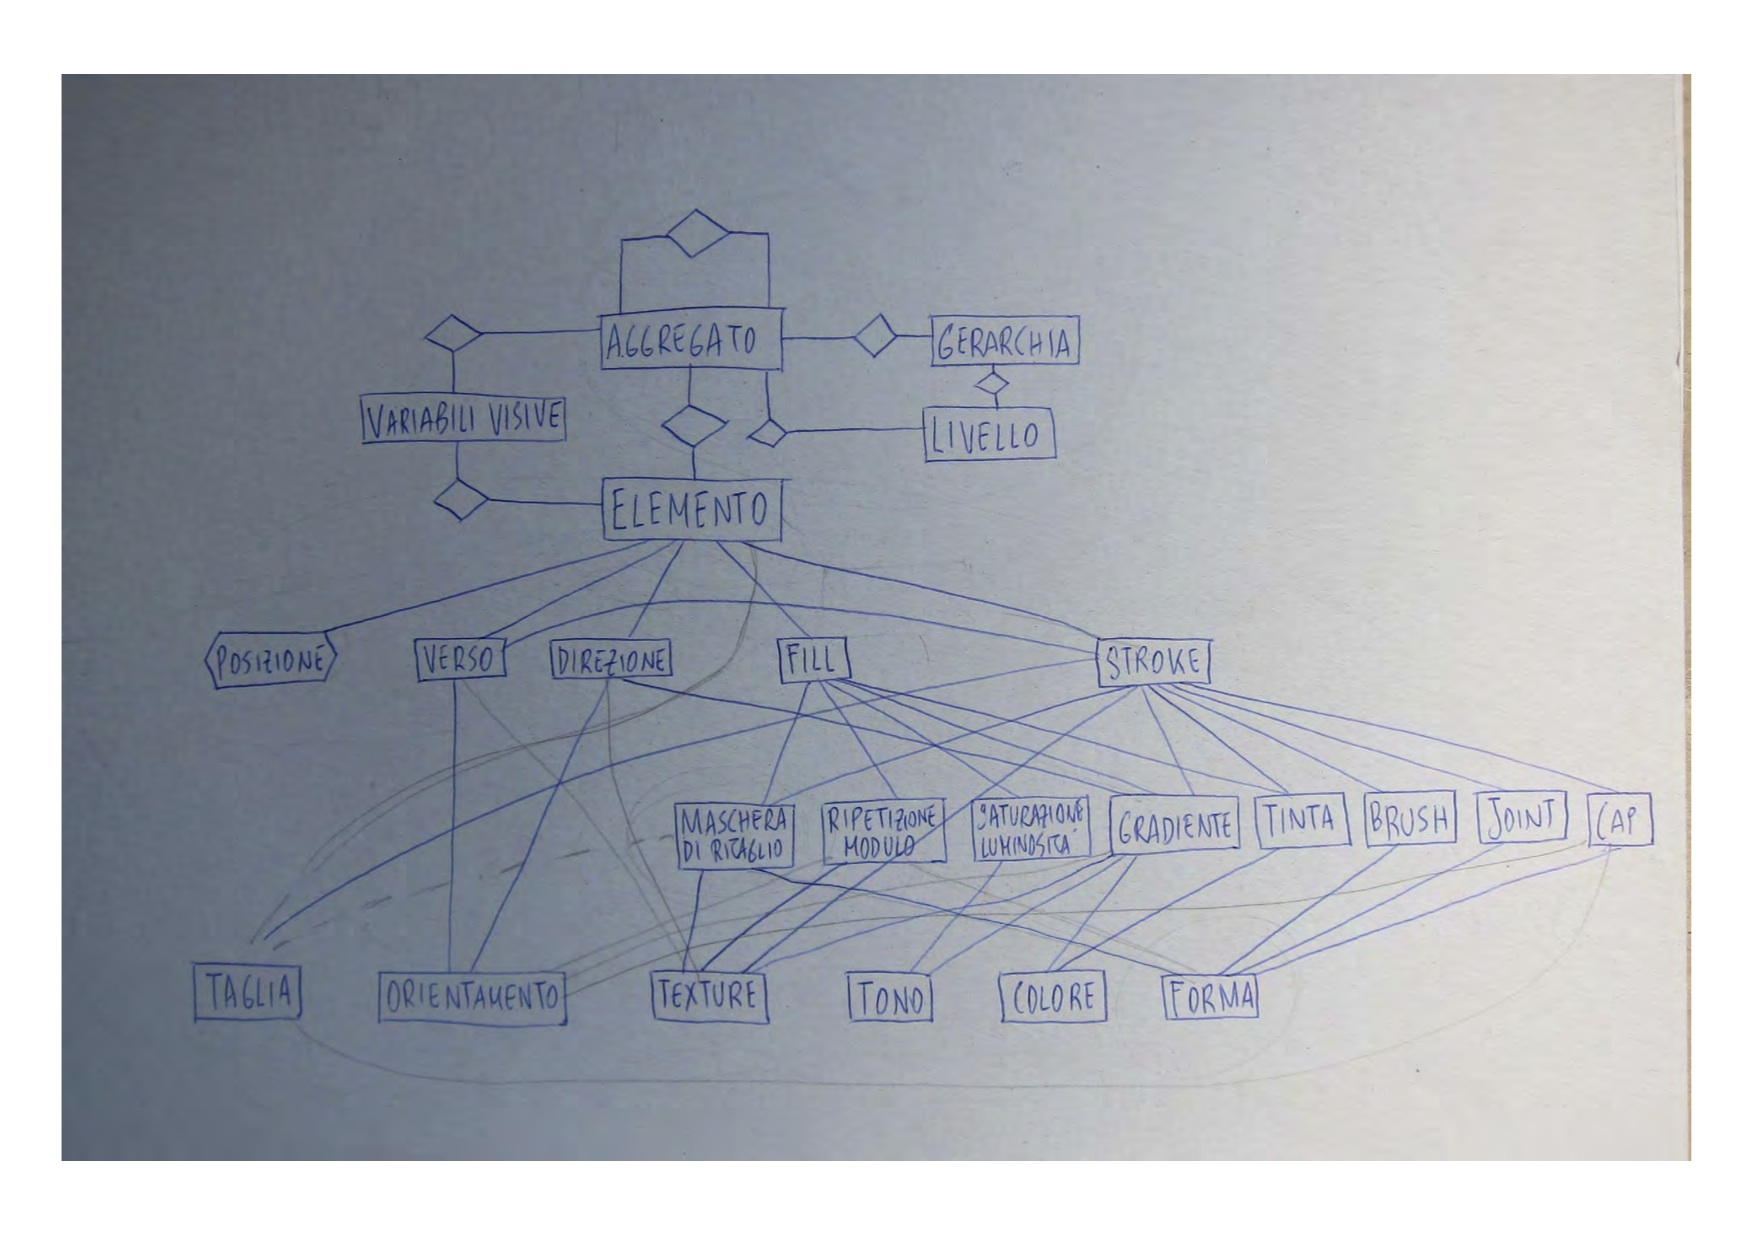 AGGREGATO
GERARCHIA
VARIABILI VISIVE
LIVELLO
ELEMENTO
POSIZIONE
VERSO
DIREZIONE
FILL
STROKE
MASCHERA
DI RITAGLIO
RIPETIZIONE
MODULO
SATURAZIONE
LUMINOSITÀ
GRADIENTE
TINTA
BRUSH
JOINT
CAP
TAGLIA
ORIENTAMENTO
TEXTURE
TONO
COLORE
FORMA